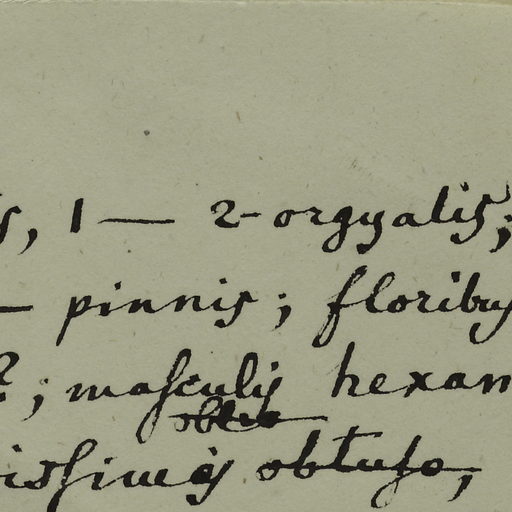 s, 1 — 2-orgyalis;
— pinnis; floribus
?; masculis hexan
issimis obtuso,